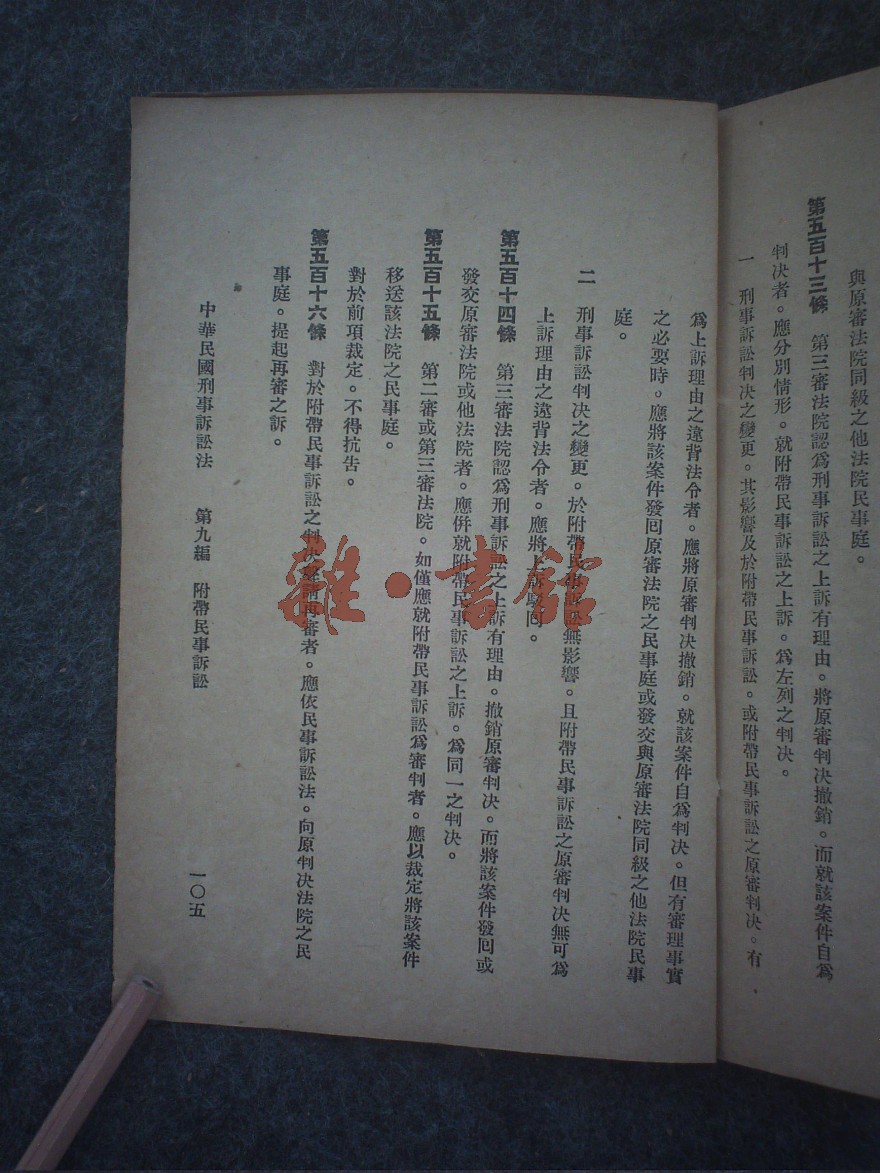 與原審法院同級之他法院民事庭。
第五百十三條　第三審法院認爲刑事訴訟之上訴有理由。將原審判決撤銷。而就該案件自爲
判決者。應分別情形。就附帶民事訴訟之上訴。爲左列之判決。
一　刑事訴訟判決之變更。其影響及於附帶民事訴訟。或附帶民事訴訟之原審判決。有
爲上訴理由之違背法令者。應將原審判決撤銷。就該案件自爲判決。但有審理事實
之必要時。應將該案件發囘原審法院之民事庭或發交與原審法院同級之他法院民事
庭。
二　刑事訴訟判決之變更。於附帶民事訴訟無影響。且附帶民事訴訟之原審判決無可爲
上訴理由之違背法令者。應將上訴駁囘。
第五百十四條　第三審法院認爲刑事訴訟之上訴有理由。撤銷原審判決。而將該案件發囘或
發交原審法院或他法院者。應倂就附帶民事訴訟之上訴。爲同一之判決。
第五百十五條　第二審或第三審法院。如僅應就附帶民事訴訟爲審判者。應以裁定將該案件
移送該法院之民事庭。
對於前項裁定。不得抗告。
第五百十六條　對於附帶民事訴訟之判決聲請再審者。應依民事訴訟法。向原判決法院之民
事庭。提起再審之訴。
中華民國刑事訴訟法　第九編　附帶民事訴訟
一〇五
雜·書館